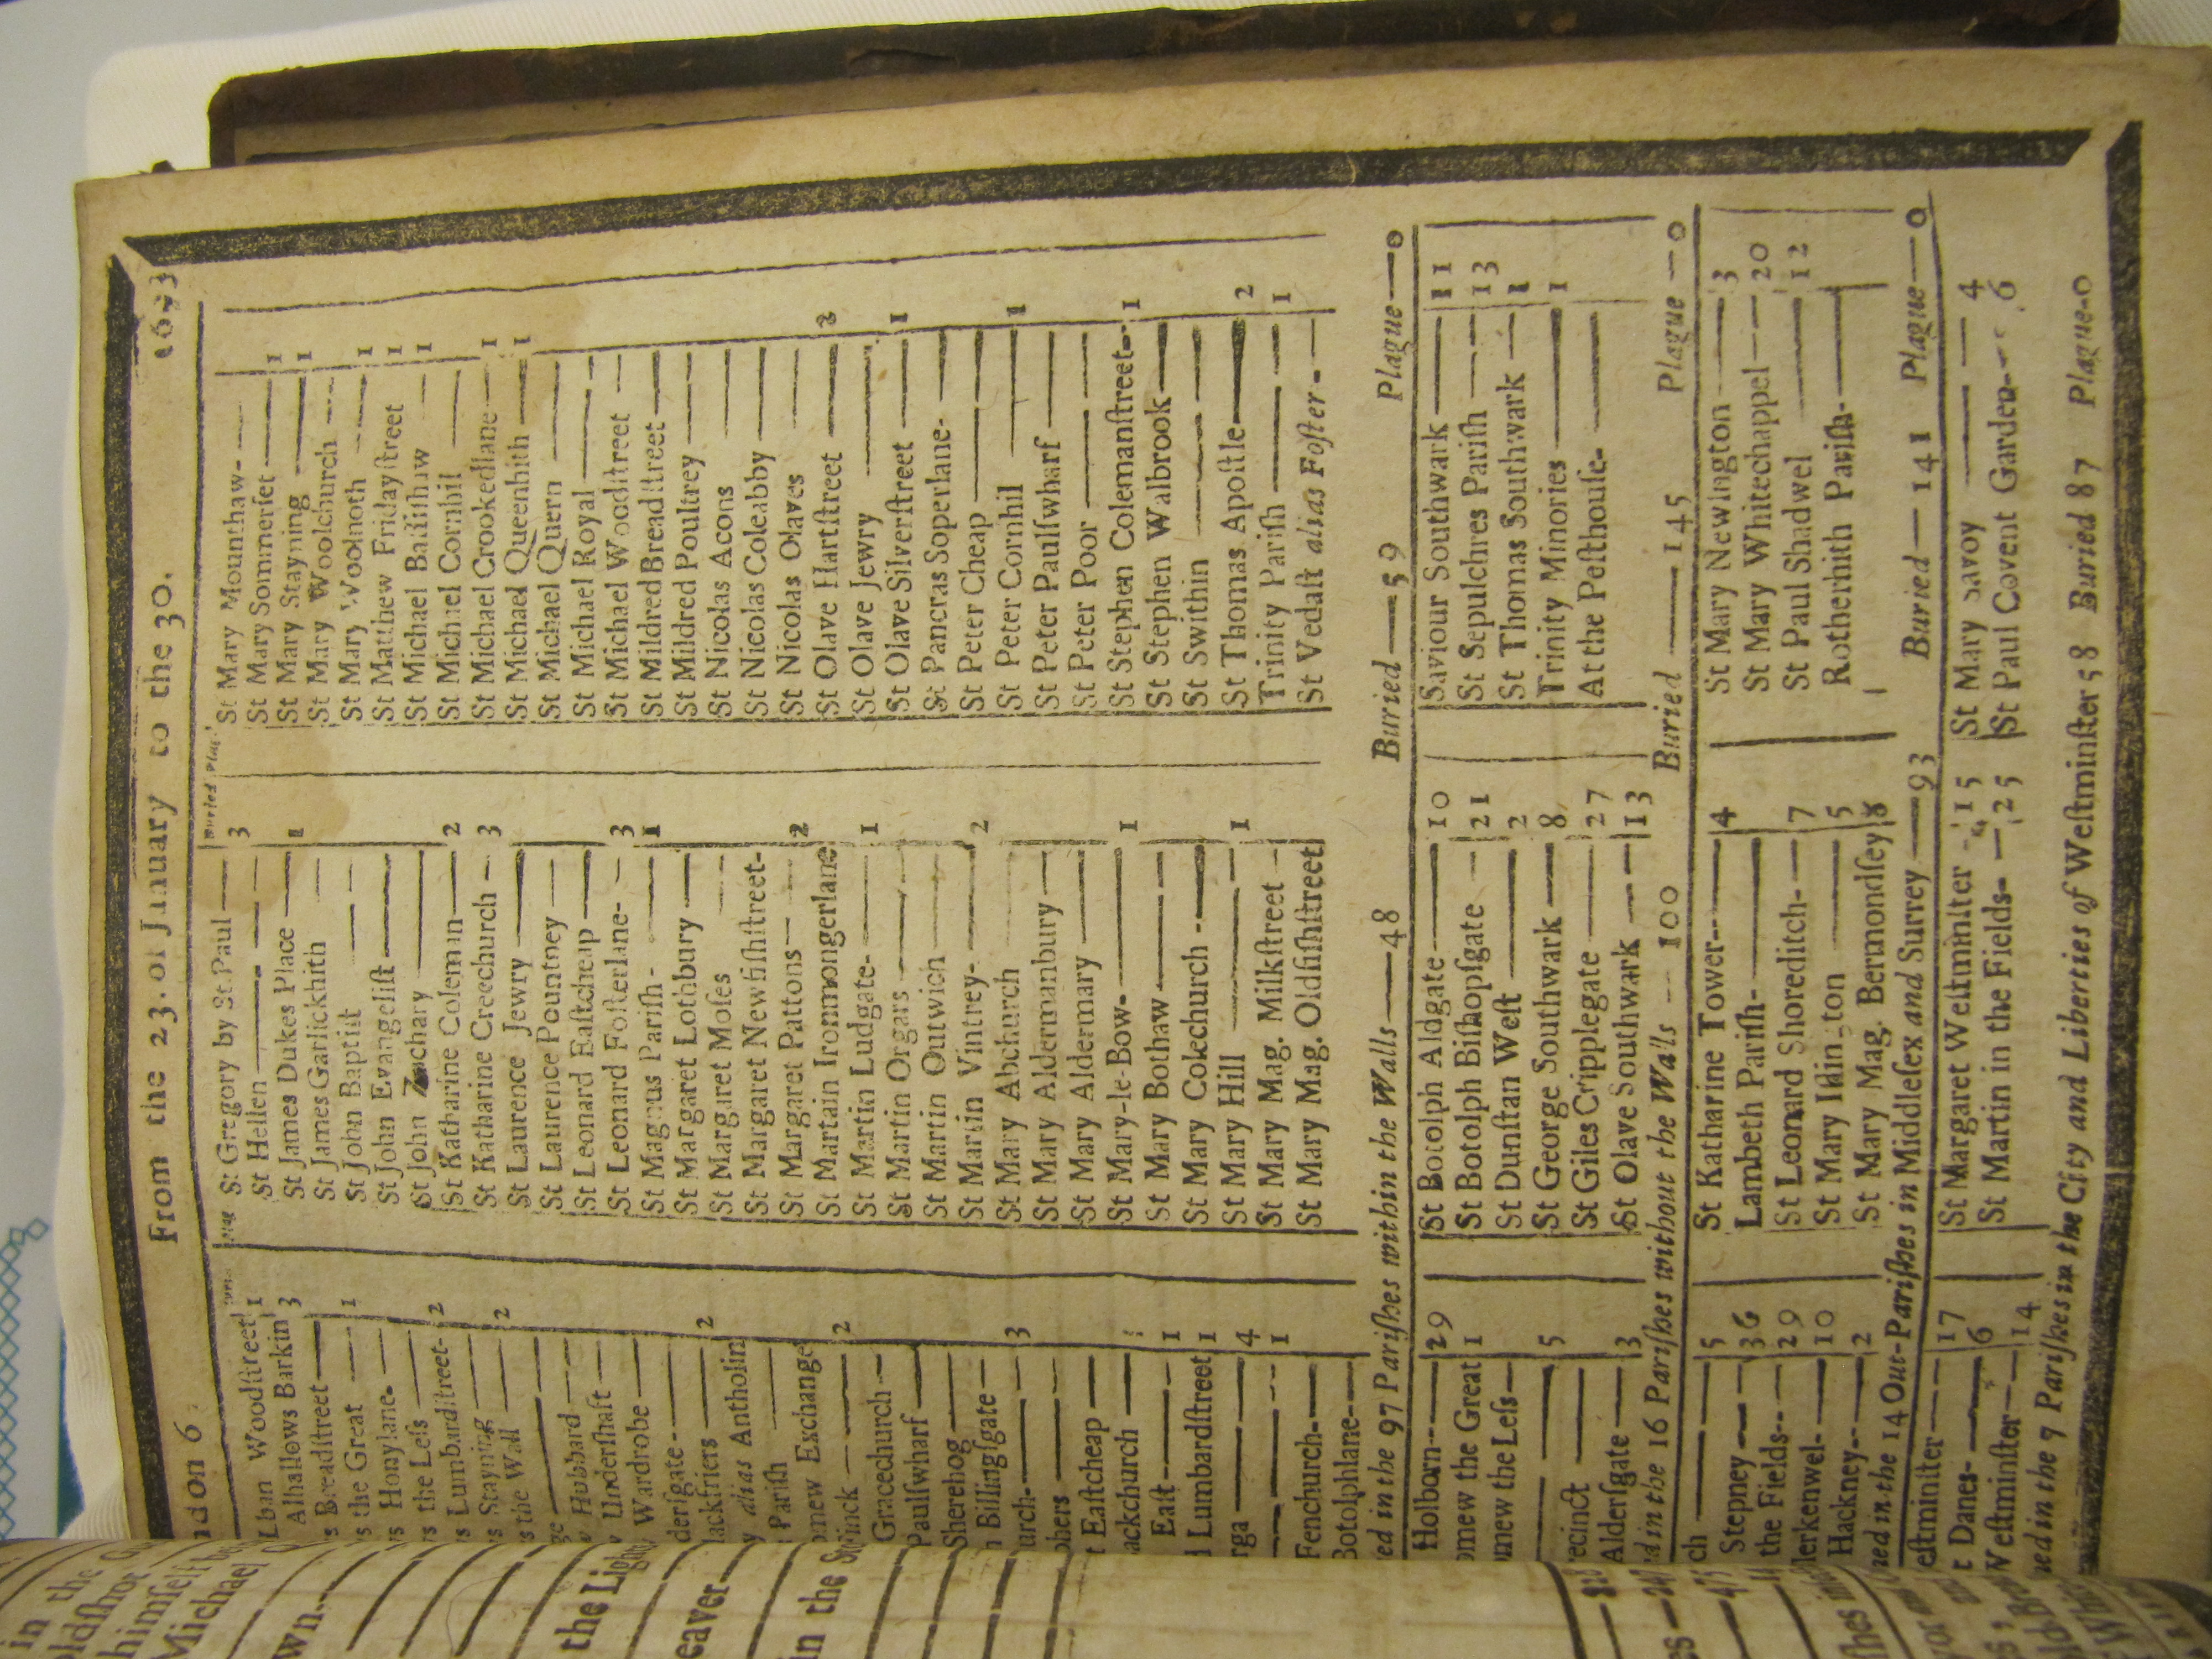 ndon 6 From the 23. of January to the 30. 1673
lban Woodſtreet 1
Alhallows Barkin 3
s Breadſtreet
s the Great 1
ys Honylane
rs the Leſs
s Lumbardſtreet 2
s Staying
s the Wall 2
Hubbard
Underſhaft
Wardrobe
derſgate
lackfriers 2
y alias Antholin
Pariſh
omew Exchange
2
Gracechurch
Paulſwharf
Sherehog
n Billingſgate
urch 3
t Eaſtcheap
ackchurch
Eaſt 1
l Lumbardſtreet 1
rga 4
1
Fenchurch
Botolphlane
Buried Plag.
St Gregory by St. Paul 3
St Hellen
St James Dukes Place 1
St James Garlickhith
St John Baptiſt
St John Evangeliſt
St John Zachary
St Katharine Coleman 2
St Katharine Creechurch 3
St Laurence Jewry
St Laurence Pountney
St Leonard Eaſtcheap
St Leonard Foſterlane 3
St Magnus Pariſh 1
St Margaret Lothbury
St Margaret Moſes
St Margaret Newfiſhſtreet
St Margaret Pattons 2
St Martain Ironmongerlane
St Martin Ludgate 1
St Martin Orgars
St Martin Outwich
St Martin Vintrey 2
St Mary Abchurch
St Mary Aldermanbury
St Mary Aldermary
St Mary-le-Bow 1
St Mary Bothaw
St Mary Colechurch
St Mary Hill 1
St Mary Mag. Milkſtreet
St Mary Mag. Oldfiſhſtreet
St Mary Mounthaw
St Mary Sommerſet 1
St Mary Stayning 1
St Mary Woolchurch
St Mary Woolnoth 1
St Matthew Fridayſtreet 1
St Michael Baſſiſhaw 1
St Michael Cornhil
St Michael Crookedlane 1
St Michael Queenhith 1
St Michael Quern
St Michael Royal
St Michael Woodſtreet
St Mildred Breadſtreet
St Mildred Poultrey
St Nicolas Acons
St Nicolas Coleabby
St Nicolas Olaves
St Olave Hartſtreet 2
St Olave Jewry
St Olave Silverſtreet 1
St Pancras Soperlane
St Peter Cheap
St Peter Cornhil 1
St Peter Paulſwharf
St Peter Poor
St Stephen Colemanſtreet 1
St Stephen Walbrook
St Swithin
St Thomas Apoſtle 2
Trinity Pariſh 1
St Vedaſt alias Foſter
ed in the 97 Pariſhes within the Walls — 48 Buried — 59 Plague — 0
Holborn 29
omew the Great 1
omew the Leſs
5
recinct
Alderſgate 3
St Botolph Aldgate 10
St Botolph Biſhopſgate 21
St Dunſtan Weſt 2
St George Southwark 8
St Giles Cripplegate 27
St Olave Southwark 13
Saviour Southwark 11
St Sepulchres Pariſh 13
St Thomas Southwark 1
Trinity Minories 1
At the Peſthouſe
d in the 16 Pariſhes without the Walls — 100 Buried — 145 Plague — 0
ch 5
Stepney 36
the Fields 29
lerkenwel 10
Hackney 2
St Katharine Tower 4
Lambeth Pariſh
St Leonard Shoreditch 7
St Mary Iſlington 5
St Mary Mag. Bermondſey 8
St Mary Newington 3
St Mary Whitechappel 20
St Paul Shadwel 12
Rotherhith Pariſh
ried in the 14 Out-Pariſhes in Middleſex and Surrey — 93 Buried — 141 Plague — 0
eſtminſter 17
t Danes 6
Weſtminſter 14
St Margaret Weſtminſter 15
St Martin in the Fields 25
St Mary Savoy 4
St Paul Covent Garden 6
ied in the 7 Pariſhes in the City and Liberties of Weſtminſter 58 Buried 87 Plague-0
in the
himſelf
Michael
wn
the Ligh
eaver
in the